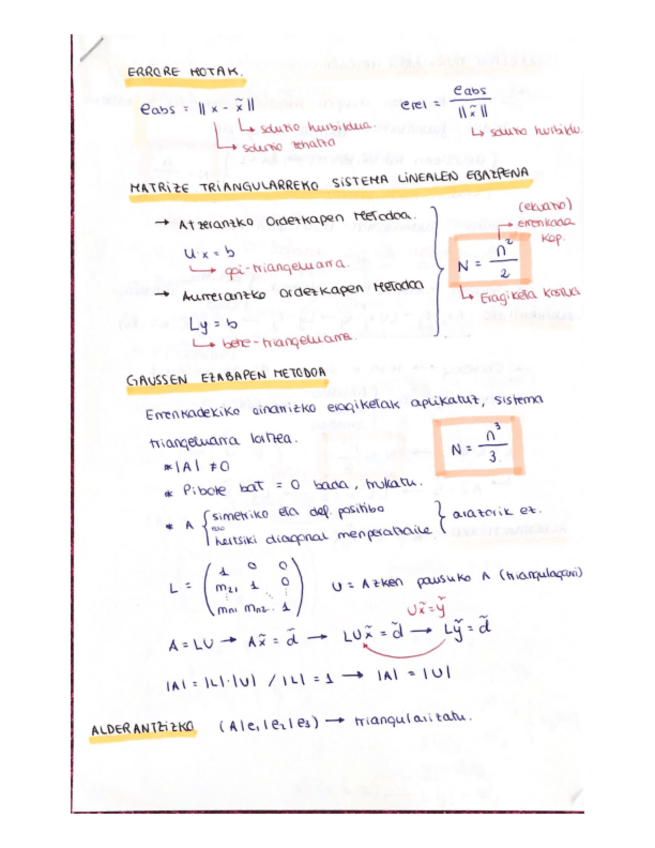 ERRORE MOTAK.
eabs = || x - x̃ ||
erel = eabs / ||x̃||
↳ soluzio hurbildua
↳ soluzio zehatza
↳ soluzio hurbildu.
MATRIZE TRIANGULARREKO SISTEMA LINEALEN EBAZPENA
→ Atzeranzko Ordezkapen Metodoa.
U·x = b
↳ goi-triangeluarra.
→ Aurreranzko Ordezkapen Metodoa
Ly = b
↳ behe-triangeluarra.
(ekuazio)
→ errenkada
kop.
N = n²/2
↳ Eragiketa kostua
GAUSSEN EZABAPEN METODOA
Errenkadekiko oinarrizko eragiketak aplikatuz, sistema
triangeluarra lortzea.
N = n³/3.
* |A| ≠ 0
* Pibote bat = 0 bada, trukatu.
* A { simetriko eta def. positibo
edo
hertsiki diagonal menperatzaile } arazorik ez.
L = ( 1 0 0
m21 1 0
mn1 mn2 .. 1 )
U = Azken pausuko A (triangulagarri)
Ux̃ = ỹ
A = LU → Ax̃ = d̃ → LUx̃ = d̃ → Lỹ = d̃
|A| = |L|·|U| / |L| = 1 → |A| = |U|
ALDERANTZIZKO (A|e1|e2|e3) → triangularizatu.